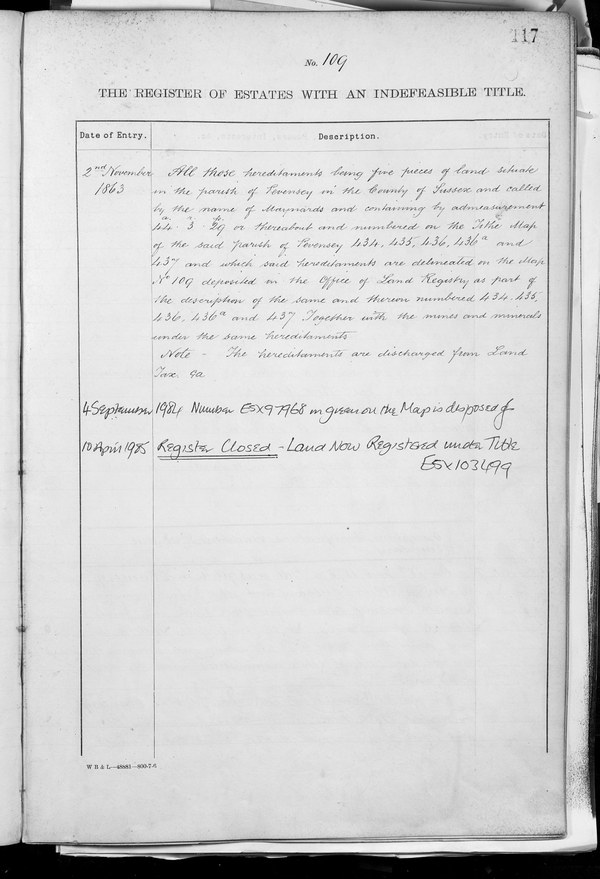 117
No. 109
THE REGISTER OF ESTATES WITH AN INDEFEASIBLE TITLE.
Date of Entry. Description.
2nd November 1863
All those hereditaments being five pieces of land situate
in the parish of Pevensey in the County of Sussex and called
by the name of Maynards and containing by admeasurement
44a. 3r. 29p or thereabout and numbered on the Tithe Map
of the said parish of Pevensey 434, 435, 436, 436a and
437 and which said hereditaments are delineated on the Map
No 109 deposited in the Office of Land Registry as part of
the description of the same and thereon numbered 434, 435,
436, 436a and 437 Together with the mines and minerals
under the same hereditaments
Note - The hereditaments are discharged from Land
Tax.
4 September 1984 Number ESX97968 on green on the Map is disposed of
10 April 1985 Register Closed - Land Now Registered under Title
ESX103499